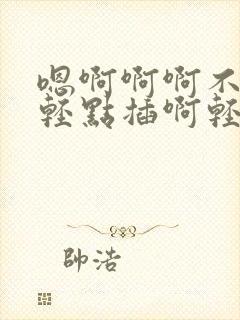 嗯啊啊啊不
輕點插啊輕
帥浩